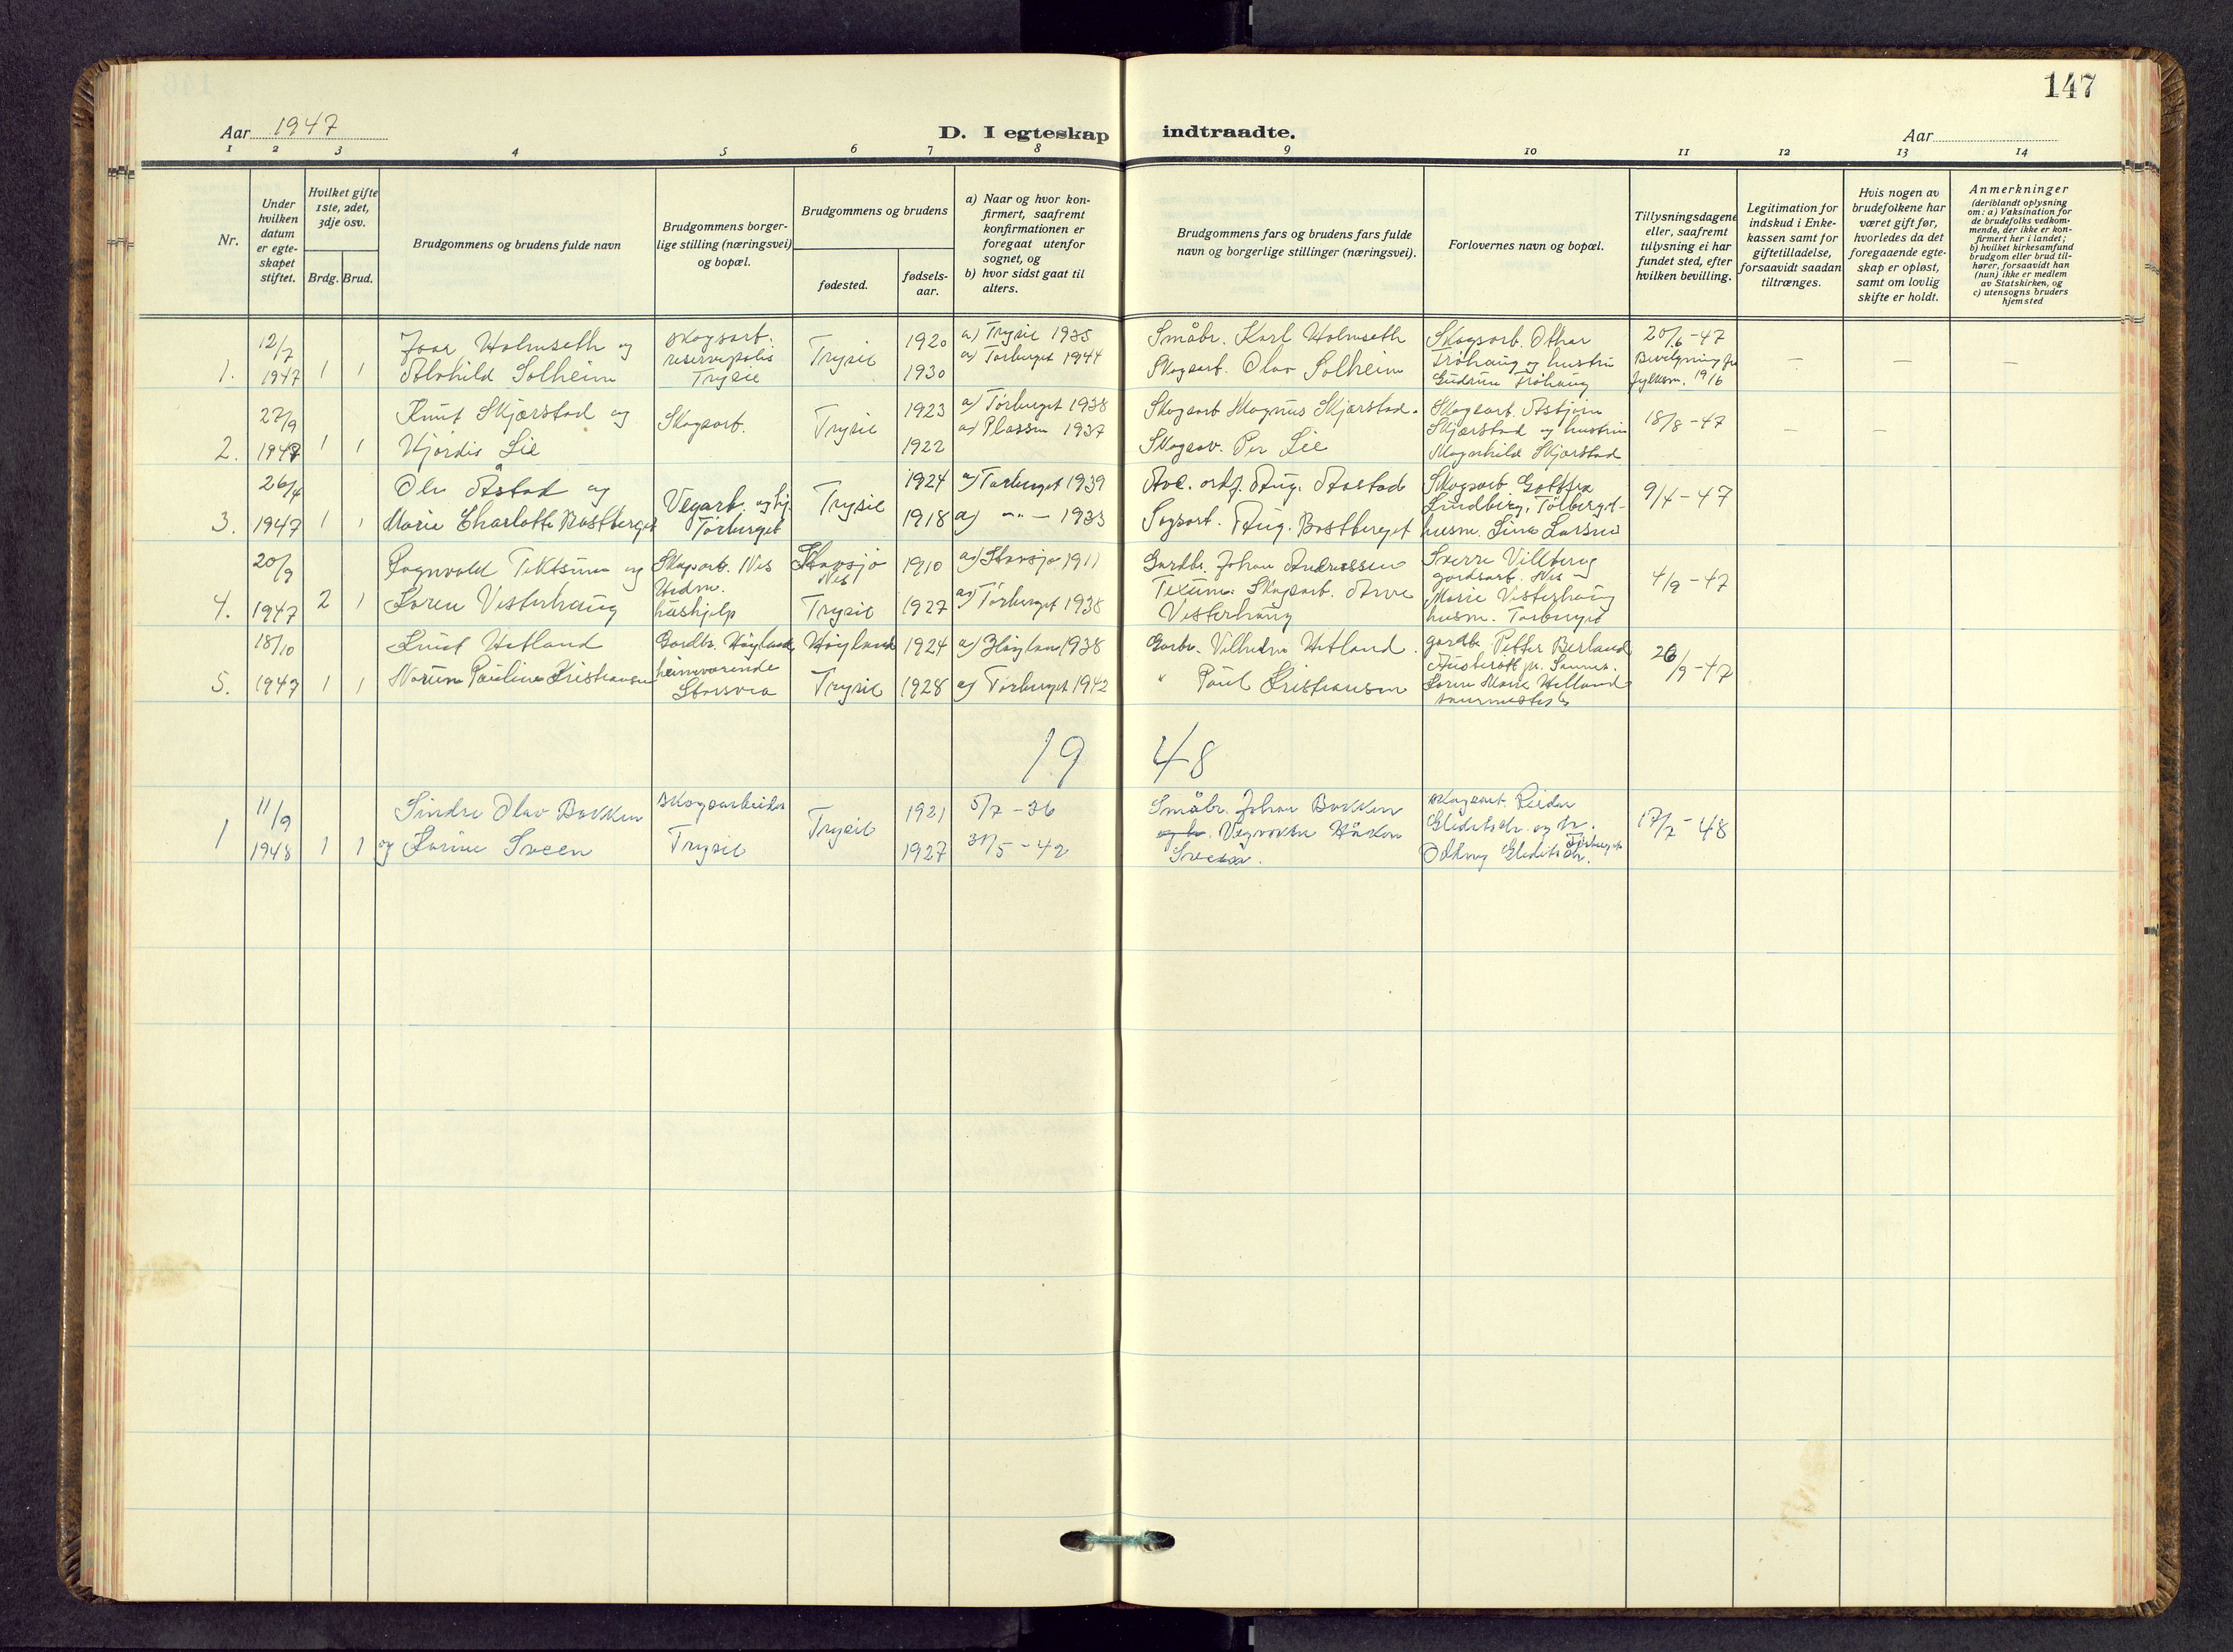 147
Aar 1947
D. I egteskap indtraadte.
Aar
1 2 3 4 5 6 7 8 9 10 11 12 13 14
Nr.
Under hvilken datum er egte-skapet stiftet.
Hvilket gifte 1ste, 2det, 3dje osv.
Brdg. Brud.
Brudgommens og brudens fulde navn
Brudgommens borger-lige stilling (næringsvei) og bopæl.
Brudgommens og brudens
fødested.
fødsels-aar.
a) Naar og hvor kon-firmert, saafremt konfirmationen er foregaat utenfor sognet, og
b) hvor sidst gaat til alters.
Brudgommens fars og brudens fars fulde navn og borgerlige stillinger (næringsvei).
Forlovernes navn og bopæl.
Tillysningsdagene eller, saafremt tillysning ei har fundet sted, efter hvilken bevilling.
Legitimation for indskud i Enke-kassen samt for giftetilladelse, forsaavidt saadan tiltrænges.
Hvis nogen av brudefolkene har været gift før, hvorledes da det foregaaende egte-skap er opløst, samt om lovlig skifte er holdt.
Anmerkninger (deriblandt oplysning om: a) Vaksination for de brudefolks vedkom-mende, der ikke er kon-firmert her i landet; b) hvilket kirkesamfund brudgom eller brud til-hører, forsaavidt han (hun) ikke er medlem av Statskirken, og c) utensogns bruders hjemsted
12/7 Holmseth og skogsarb. 1920 a) Trysil 1935 Småbr. Karl Holmseth Skogsarb. Othar 20/6-47
reservepoliti Trysil a) Tørberget 1944 Trøhaug og hustru
1. 1947 1 1 Alvhild Solheim Trysil 1930 Skogsarb. Olav Solheim Gudrun Trøhaug fylkesm. 19/6
27/9 Knut Skjærstad og Skogsarb. Trysil 1923 a) Tørberget 1938 Skogsarb Magnus Skjærstad. Skogsarb. Asbjørn 18/8-47
a) Plassen 1937 Skjærstad og hustru
2. 1947 1 1 Hjørdis Lie 1922 Skogsarb. Per Lie Magnhild Skjærstad
26/4 Ola Åstad og Vegarb. Trysil 1924 a) Tørberget 1939 Aug. Aastad Skogsarb. 9/4-47
Lundberg,
3. 1947 1 1 Marie Charlotte Bastberget Tørberget 1918 a) -"- 1933 Aug. Bastberget husm. Lina Larsen
20/9 Ragnvald og Skogsarb. Nes Stavsjø Nes 1910 a) Stavsjø 1911 Gardbr. Johan Andreassen Sverre Villberg 4/9-47
Hedm. Skogsarb. Arve gardsarb. Nes
4. 1947 2 1 Karen Vesterhaug hushjelp Trysil 1927 a) Tørberget 1938 Vesterhaug Marie Vesterhaug
husm. Tørberget
18/10 Knut Hetland Gardbr. Høyland Høyland 1924 a) Høyland 1938 Gardbr. Vilhelm Hetland. gardbr. Petter Berland 26/9-47
heimeværende
5. 1947 1 1 Norunn Pauline Kristiansen Storsvea Trysil 1928 a) Tørberget 1942 " Paul Kristiansen Karen Marie Hetland
1948
11/9 Sindre Olav Bakken skogsarbeider Trysil 1921 5/7-36 Småbr. Johan Bakken skogsarb. Reidar 17/7-48
Vegvokter Håkon Gleditsch. og fr.
1 1948 1 1 og Karine Sveen Trysil 1927 31/5-42 Sveen. Gleditsch. Tørberget